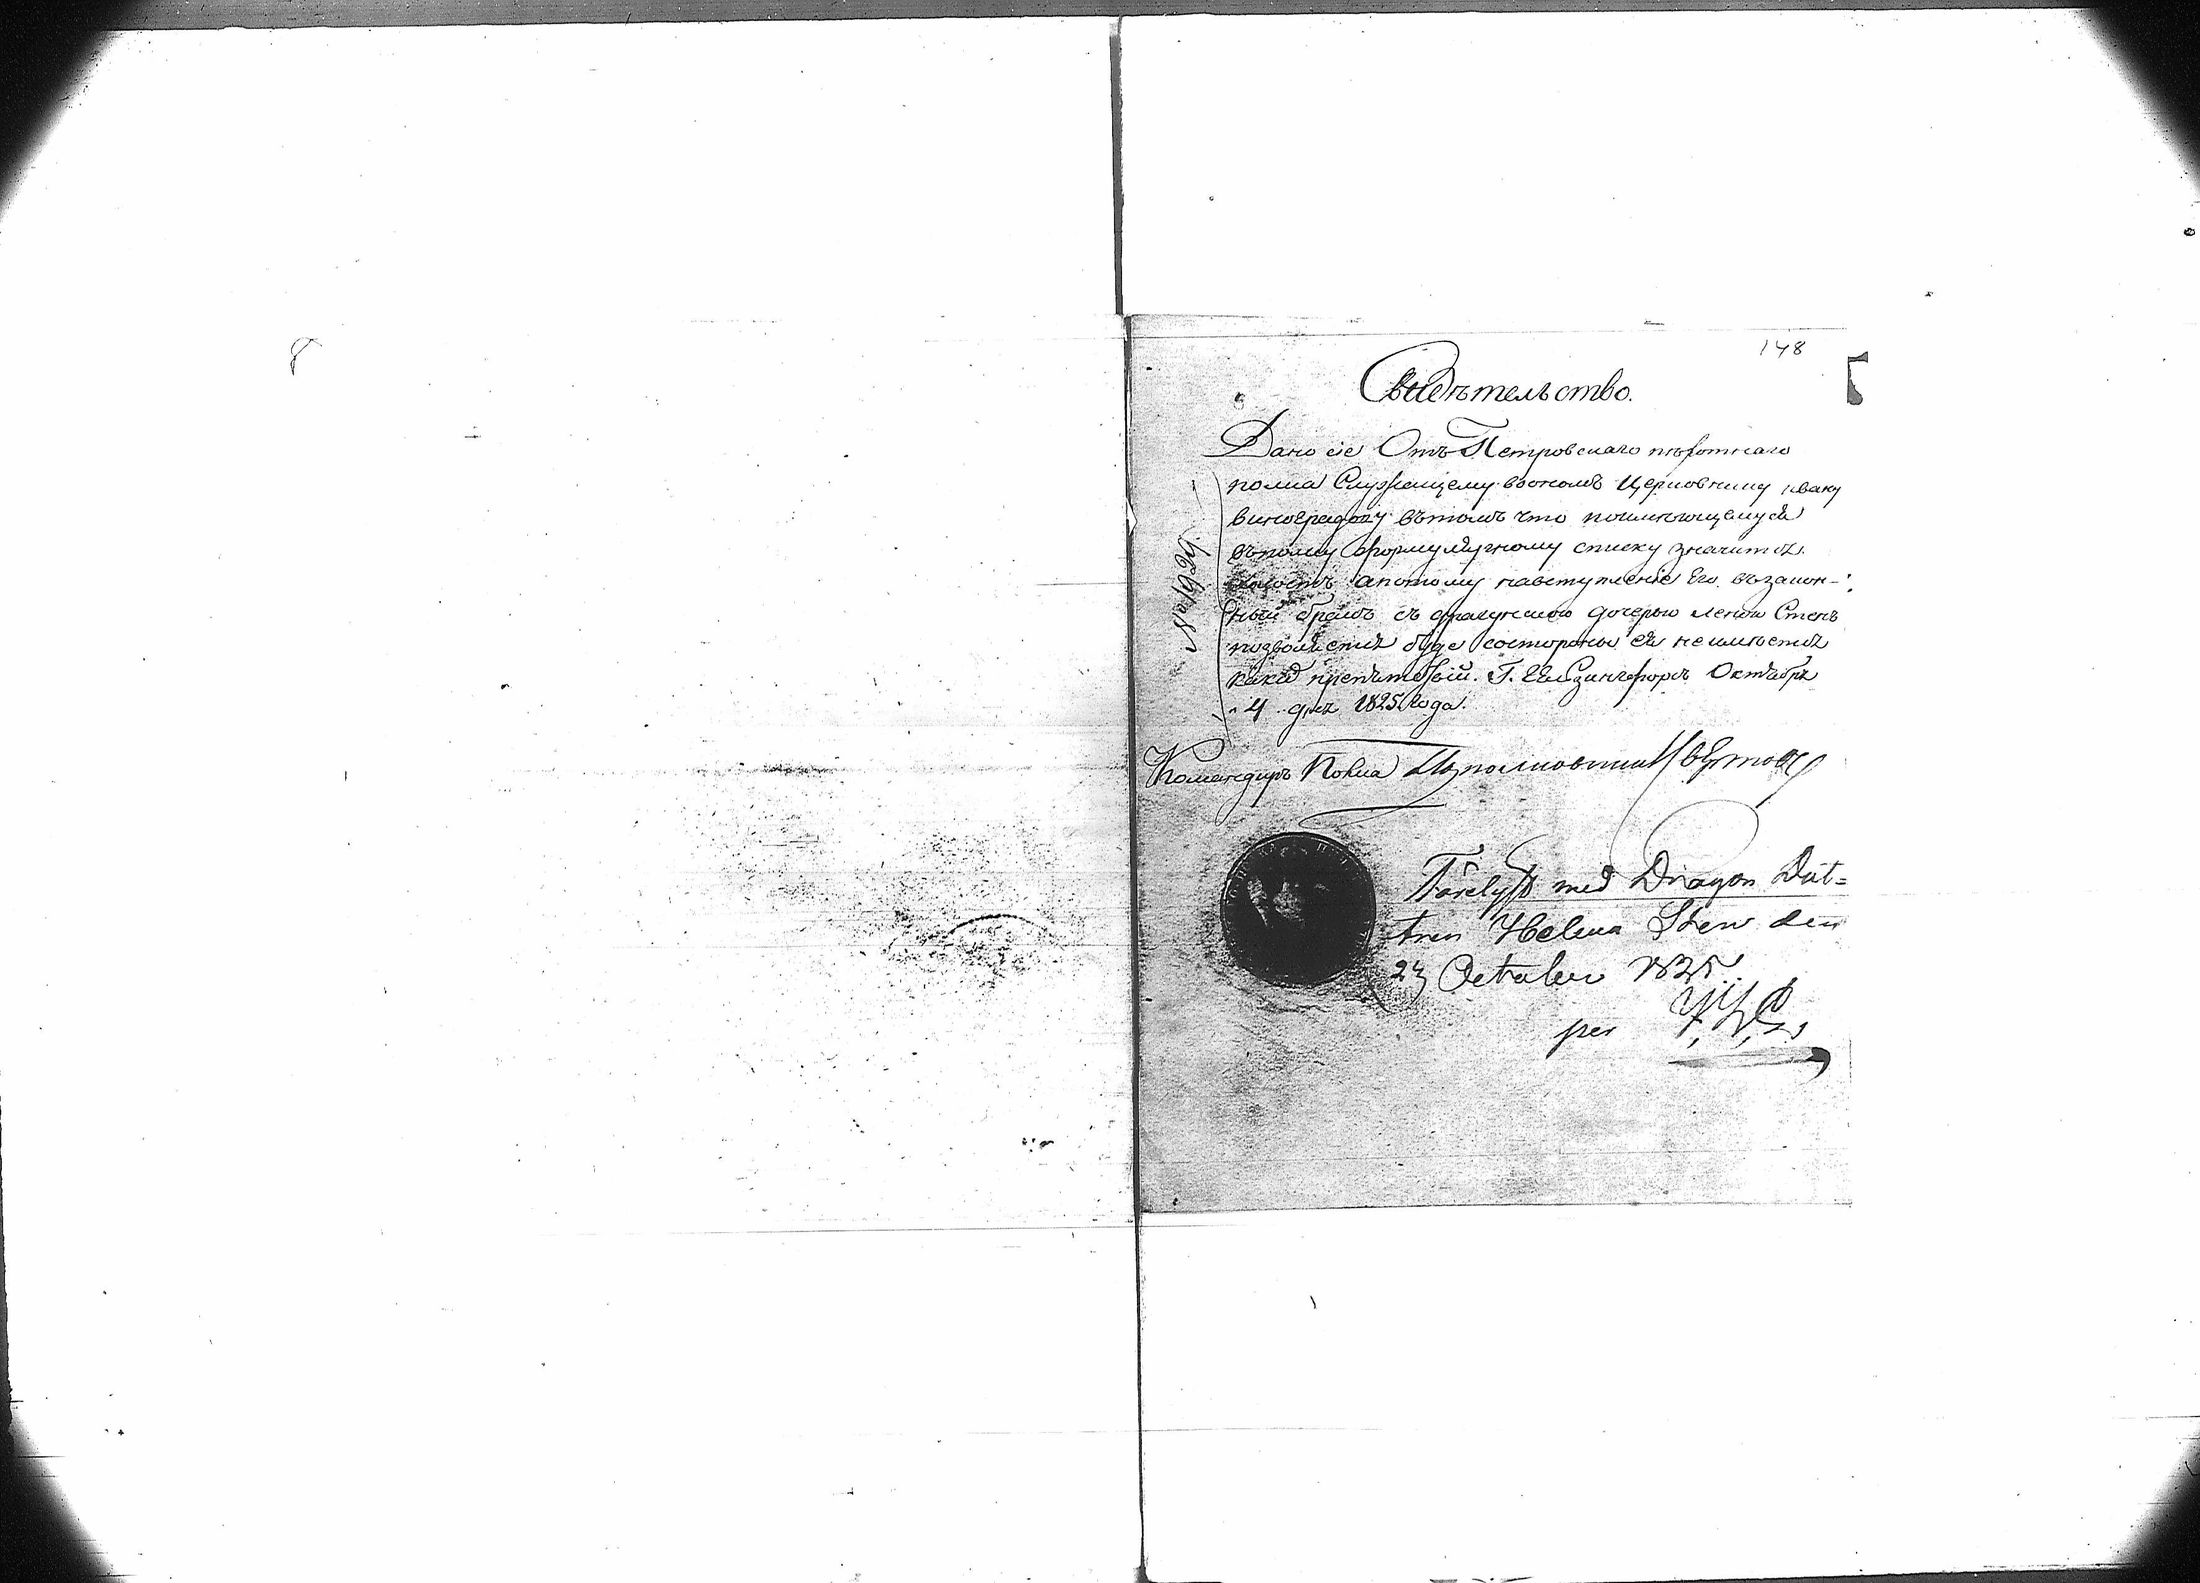 148
Свидѣтельство.
Дано сіе Отъ Петровскаго пѣхотнаго
полка Служащему вономъ Церковнику ивану
виноградову вътомъ что поимѣющемуся
въполку формулярному списку значится
холостъ апотому навступленіе Его взакон-
ный бракъ съ драгунскою дочерью леной Стенъ
позволяется буде состороны ея неимѣется
какихъ препятствій. Г. Гельзингфорсъ Октября
4 дня 1825 года.
Командиръ Полка Подполковникъ
№ 1929
Förelyst med Dragon Dot-
tren Helena Sten den
23 October 1825.
per